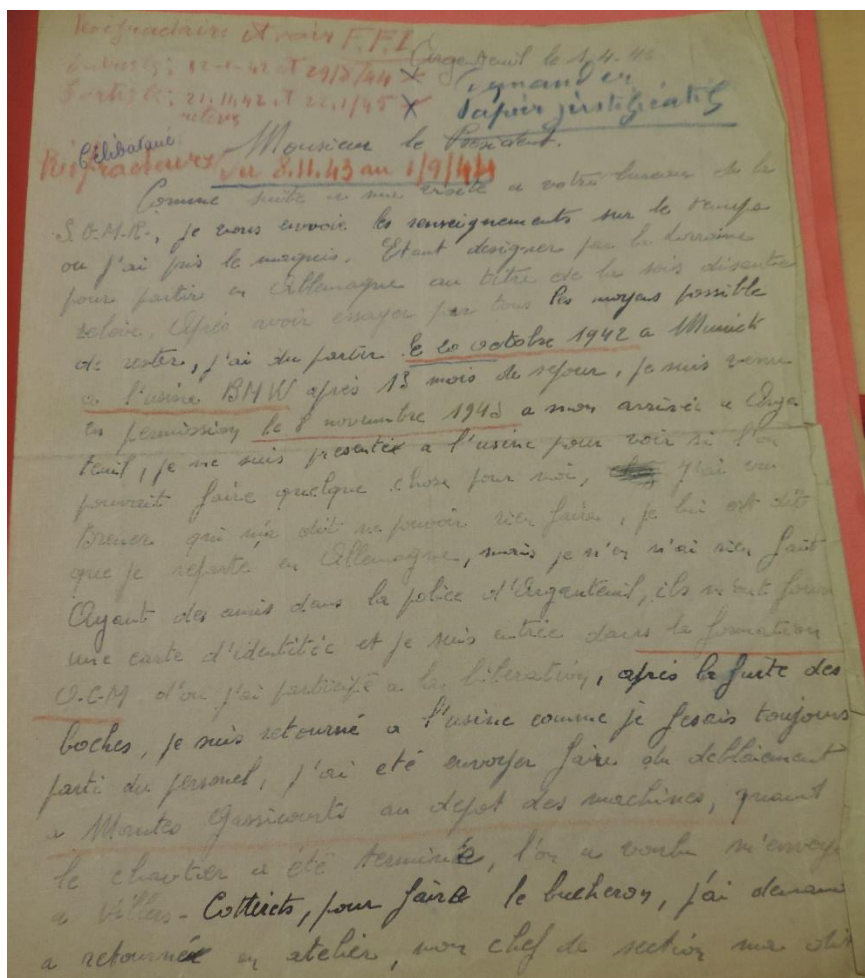 Réfractaire et voir F.F.I
Argenteuil le 1.4.46
Entrées: 12-1-42 et 29/8/44 X
Sorties: 21.11.42 et 22.1/45 X
relève
demander
papier justificatif
Célibataire
Monsieur le Président.
Réfracteurs du 8.11.43 au 1/9/44
Comme suite a ma visite a votre bureau de la
S.O.M.R., je vous envoie les renseignements sur le temps
ou j'ai pris le maquis. Etant designer par la Lorraine
pour partir en Allemagne au titre de la sois disentre
relève. Après avoir essayer par tous les moyens possible
de rester, j'ai du partir le 20 octobre 1942 a Munich
a l'usine BMW après 13 mois de sejour, je suis venu
en permission le 8 novembre 1943 a mon arrivée a Argen
teuil, je me suis presentée a l'usine pour voir si l'on
pouvait faire quelque chose pour moi, j'ai vu
Brener qui m'a dit ne pouvoir rien faire, je lui est dit
que je reparte en Allemagne, mais je n'en n'ai rien fait
Ayant des amis dans la police d'Argenteuil, ils m'ont four
une carte d'identitée et je suis entrée dans la formation
O.C.M d'ou j'ai participé a la liberation, après la fuite des
boches, je suis retourné a l'usine comme je fesais toujours
parti du personel, j'ai eté envoyer faire du deblaiement
a Mantes Gassicourts au depot des machines, quant
le chantier a été terminée, l'on a voulu m'envoye
a Villers-Cotterets, pour faire le bucheron, j'ai demand
a retournée en atelier, mon chef de section ma dit